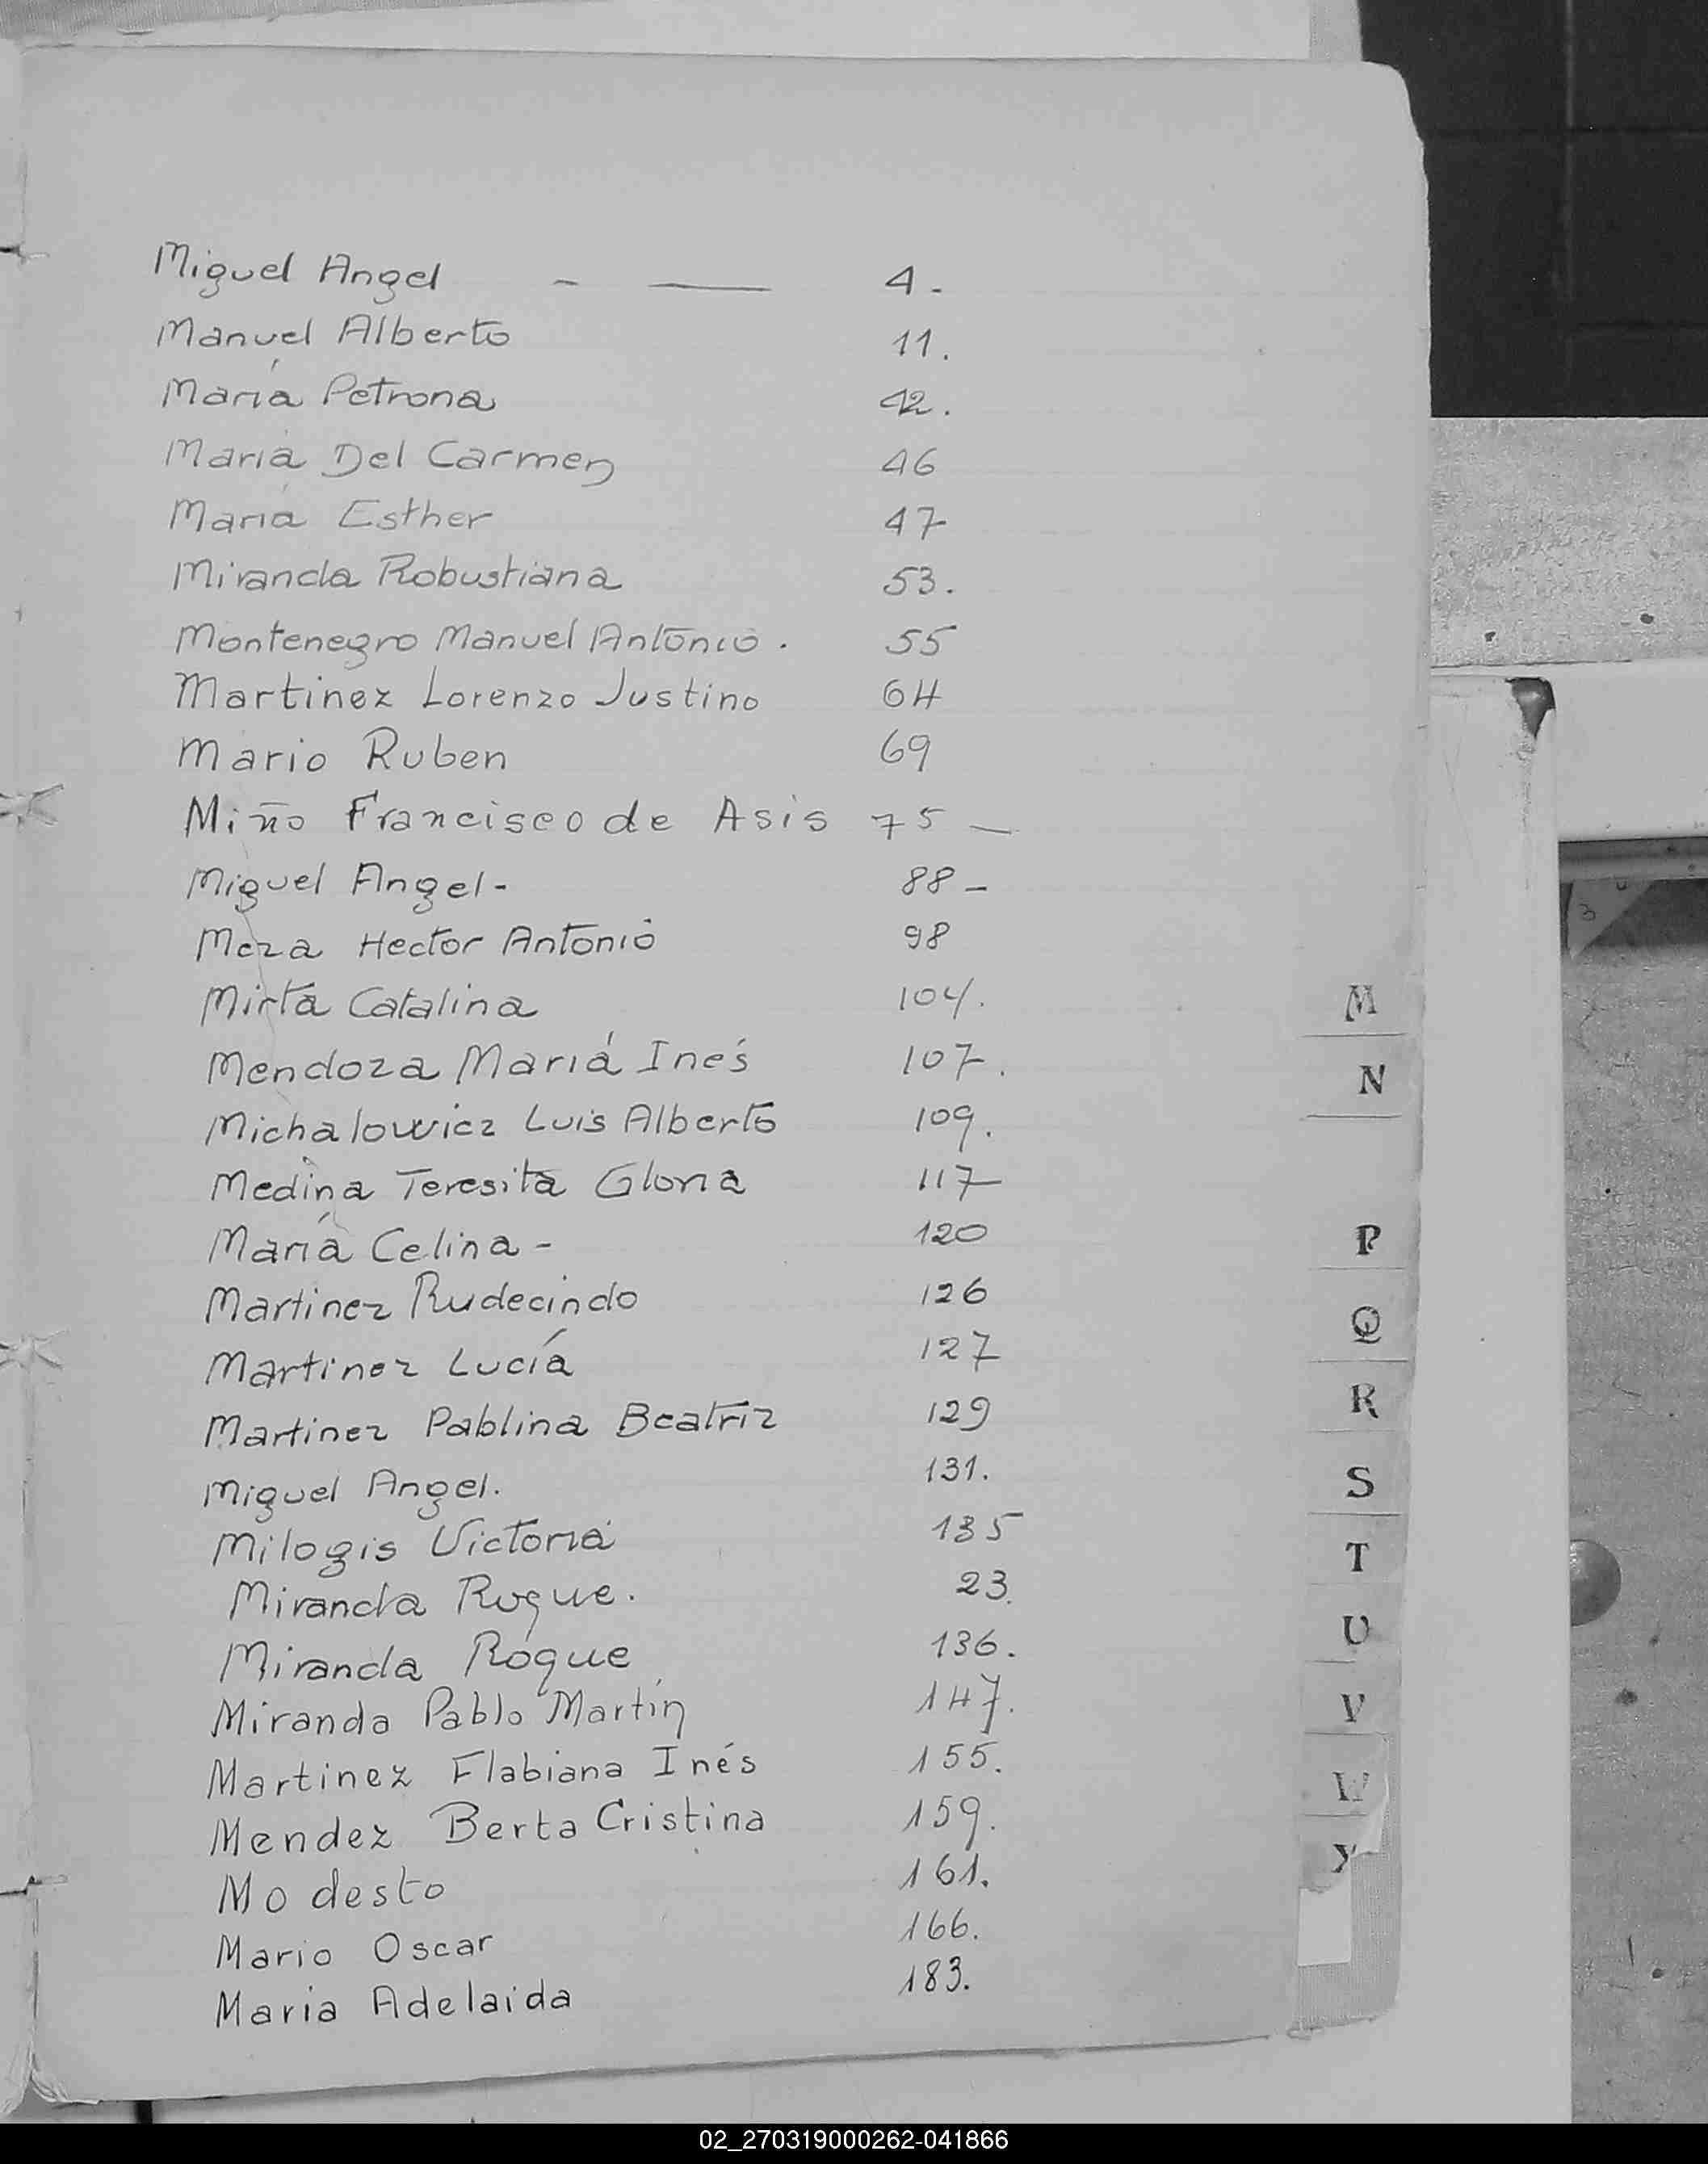 Miguel Angel - — 4.
Manuel Alberto 11.
María Petrona 42.
María Del Carmen 46
María Esther 47
Miranda Robustiana 53.
Montenegro Manuel Antonio. 55
Martinez Lorenzo Justino 64
Mario Ruben 69
Miño Francisco de Asis 75 —
Miguel Angel- 88 -
Meza Hector Antonio 98
Mirta Catalina 104.
Mendoza María Inés 107.
Michalowicz Luis Alberto 109.
Medina Teresita Gloria 117
María Celina - 120
Martinez Rudecindo 126
Martinez Lucía 127
Martinez Pablina Beatriz 129
Miguel Angel. 131.
Milogis Victoria 135
Miranda Roque. 23.
Miranda Roque 136.
Miranda Pablo Martín 147.
Martinez Flabiana Inés 155.
Mendez Berta Cristina 159.
Modesto 161.
Mario Oscar 166.
Maria Adelaida 183.
M
N
P
Q
R
S
T
U
V
W
Y
3
02_270319000262-041866